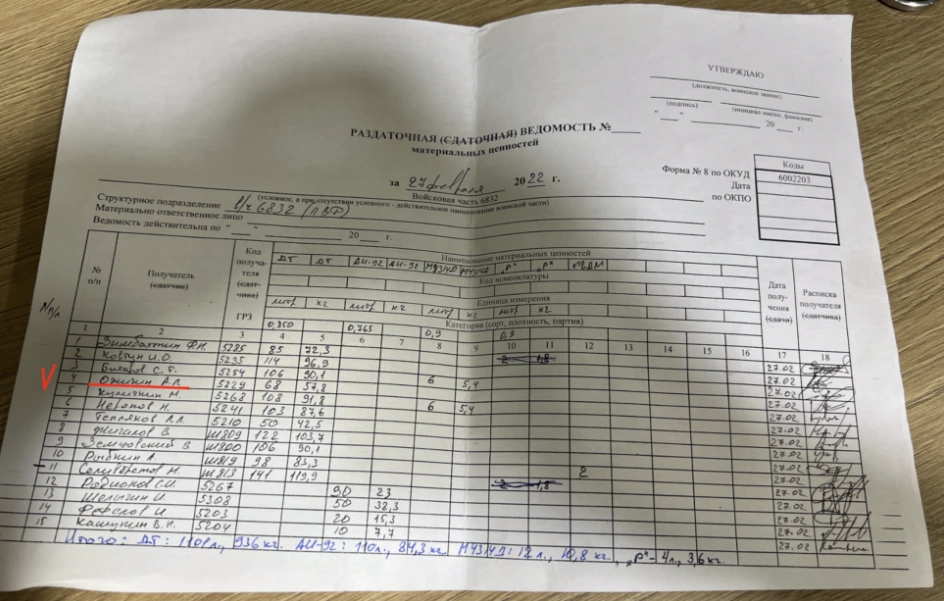 УТВЕРЖДАЮ
(должность, воинское звание)
(подпись) (инициал имени, фамилия)
" " 20 г.
РАЗДАТОЧНАЯ (СДАТОЧНАЯ) ВЕДОМОСТЬ №
материальных ценностей
за 27 февраля 2022 г.
Войсковая часть 6832
Коды
Форма № 8 по ОКУД 6002203
Дата
по ОКПО
(условное, а при отсутствии условного - действительное наименование воинской части)
Структурное подразделение в/ч 6832
Материально ответственное лицо
Ведомость действительна по " " 20 г.
№ п/п Получатель (сдатчик) Код получателя (сдатчика) ГРЗ Наименование материальных ценностей Дата получения (сдачи) Расписка получателя (сдатчика)
ДТ ДТ АИ-92 АИ-92 "Р" "Р"
Код номенклатуры
Единица измерения
литр кг литр кг литр кг
Категория (сорт, плотность, партия)
0,850 0,765 0,9 0,9
1 2 3 4 5 6 7 8 9 10 11 12 13 14 15 16 17 18
1 5285 85 72,3 2 1,8 27.02
2 Ковтун И.О. 5235 114 96,9 27.02
3 Битаров С. 5254 106 90,1 27.02
4 5229 68 57,8 6 5,4 27.02
5 5268 108 91,8 27.02
6 5241 103 87,6 6 5,4 27.02
7 Тепляков 5210 50 42,5 27.02
8 122 103,7 27.02
9 106 90,1 27.02
10 Рыбкин А. 98 83,3 27.02
11 Селивёрстов М. 141 119,9 2 27.02
12 Родионов С.И. 5267 2 1,8 27.02
13 Шелыгин И. 5308 50 27.02
14 5203 20 15,3 27.02
15 5204 10 7,7 27.02
Итого: ДТ: 1101 л., 936 кг. АИ-92: 110 л., 84,3 кг. 12 л., 10,8 кг., "Р" - 4 л., 3,6 кг.